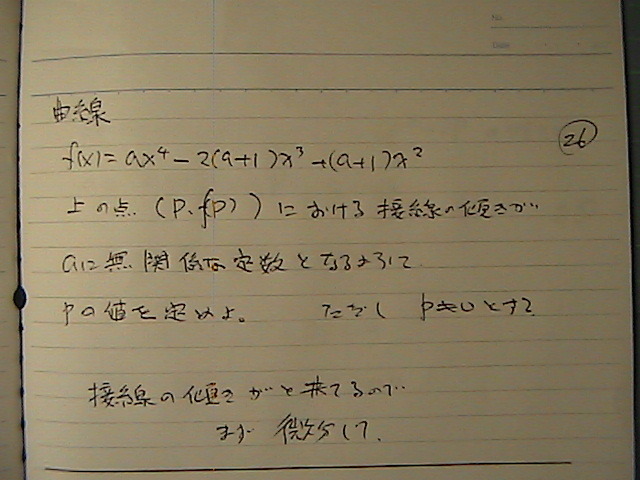 No.
Date
曲線
26
f(x)=ax⁴-2(a+1)x³+(a+1)x²
上の点 (P、f(P)) における接線の傾きが
aに無関係な定数となるように
Pの値を定めよ。 ただし P≠0とする
接線の傾きがと来てるので
まず 微分して、